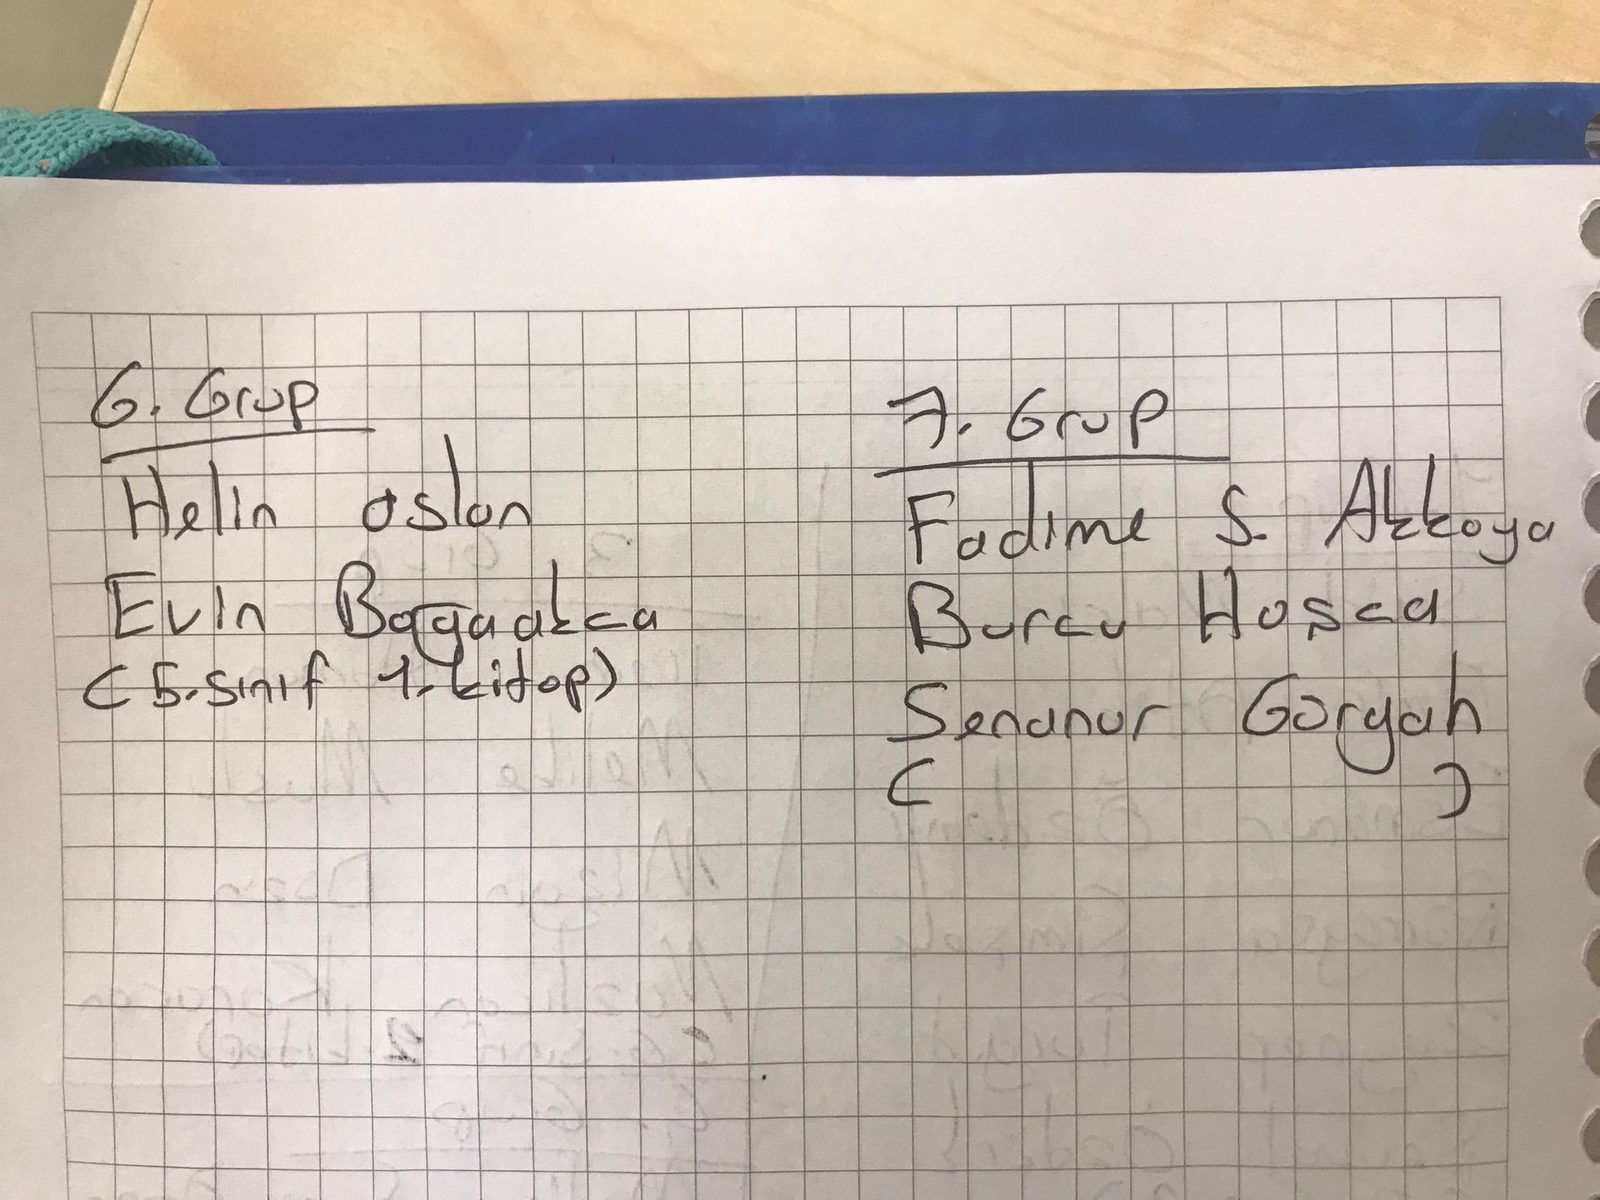 6. Grup
Helin aslan
Evin Bagaakca
(5.sınıf 1.kitap)
7. Grup
Fadime S. Akkaya
Burcu Hosca
Senanur Goryah
( )